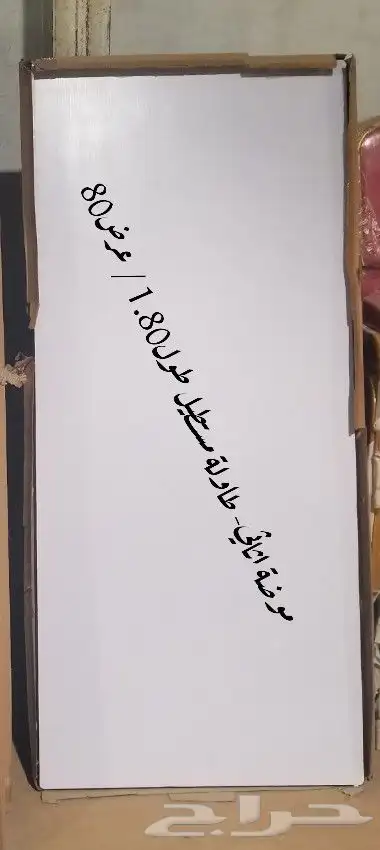 موضة اثاثي - طاولة مستطيل طول 1.80 / عرض 80
حراج